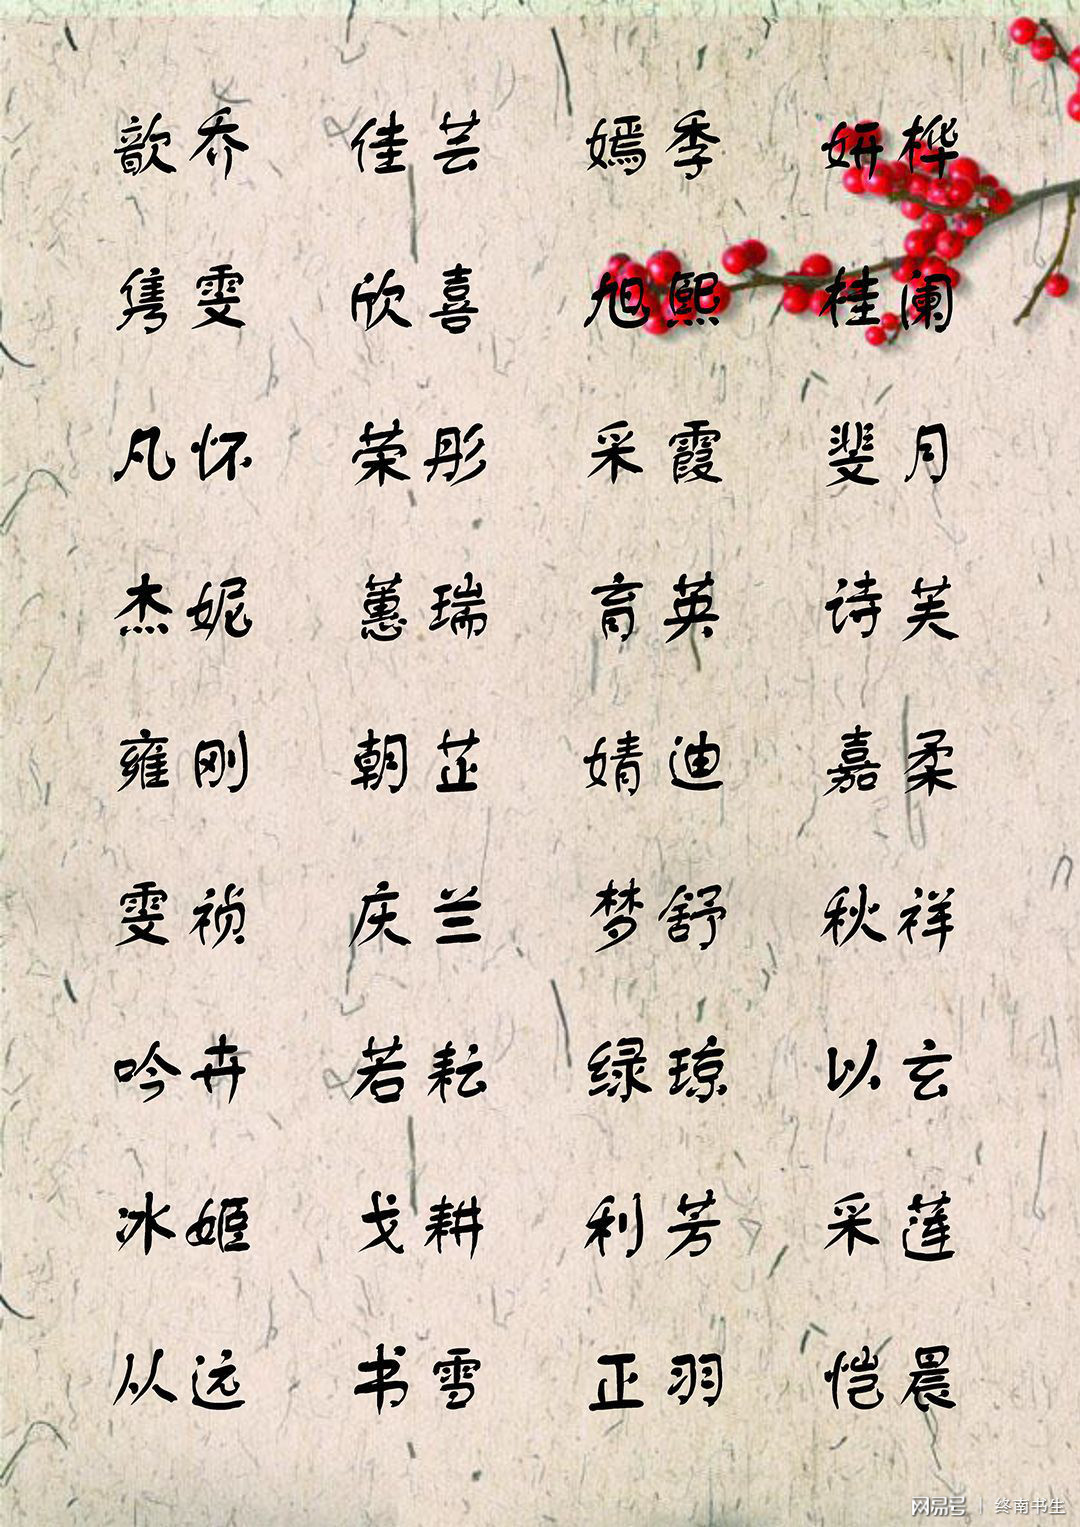 歆乔 佳芸 嫣季 妍桦
隽雯 欣喜 旭熙 桂阑
凡怀 荣彤 采霞 斐月
杰妮 蕙瑞 育英 诗芙
雍刚 朝芷 婧迪 嘉柔
雯祯 庆兰 梦舒 秋祥
吟卉 若耘 绿琼 以玄
冰姬 戈耕 利芳 采莲
从远 书雪 正羽 恺晨
网易号 | 终南书生